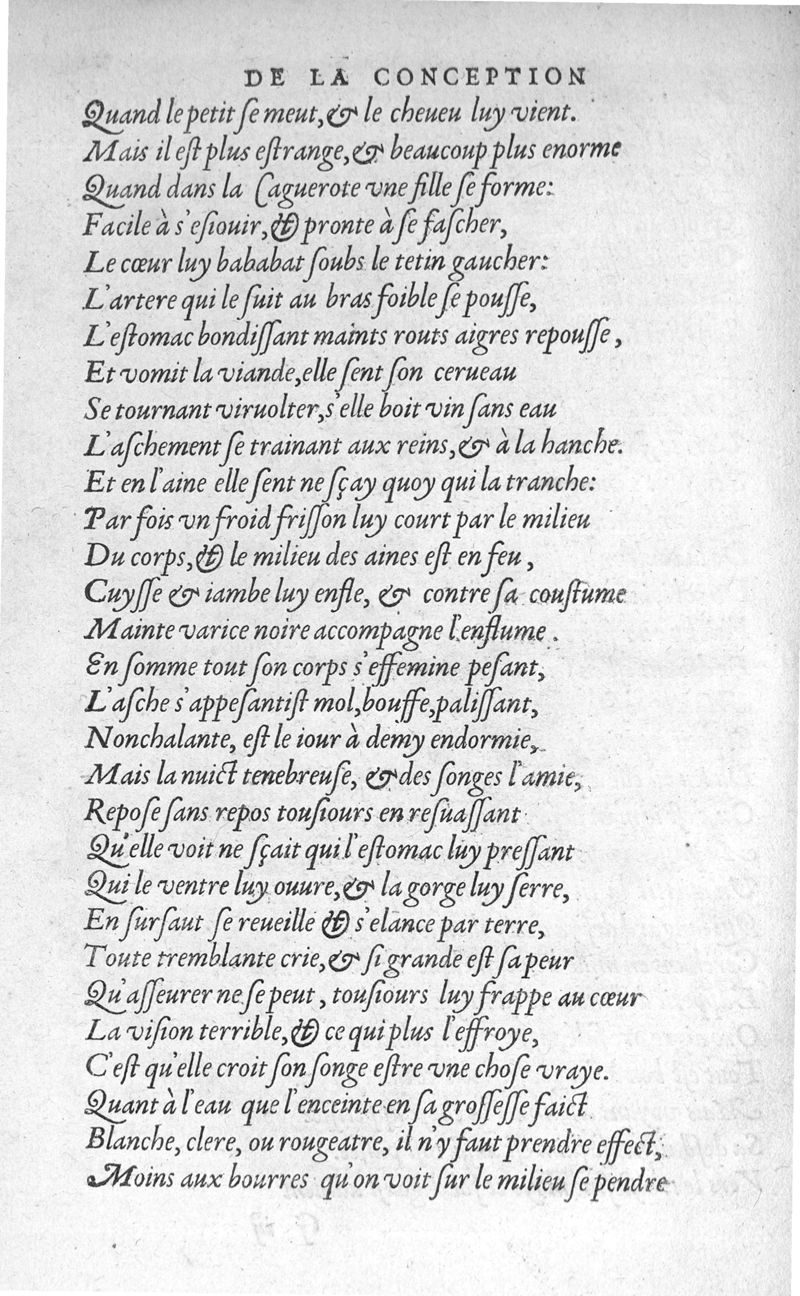 DE LA CONCEPTION
Quand le petit ſe meut, & le cheueu luy vient.
Mais il eſt plus eſtrange, & beaucoup plus enorme
Quand dans la Caguerote vne fille ſe forme:
Facile à s'eſiouir, & pronte à ſe faſcher,
Le cœur luy bababat ſoubs le tetin gaucher:
L'artere qui le ſuit au bras foible ſe pouſſe,
L'eſtomac bondiſſant maints routs aigres repouſſe,
Et vomit la viande, elle ſent ſon cerueau
Se tournant viruolter, s'elle boit vin ſans eau
L'aſchement ſe trainant aux reins, & à la hanche.
Et en l'aine elle ſent ne ſçay quoy qui la tranche:
Par fois vn froid friſſon luy court par le milieu
Du corps, & le milieu des aines eſt en feu,
Cuyſſe & iambe luy enfle, & contre ſa couſtume
Mainte varice noire accompagne l'enflume.
En ſomme tout ſon corps s'effemine peſant,
L'aſche s'appeſantiſt mol, bouffe, paliſſant,
Nonchalante, eſt le iour à demy endormie,
Mais la nuict tenebreuſe, & des ſonges l'amie,
Repoſe ſans repos touſiours en reſuaſſant
Qu'elle voit ne ſçait qui l'eſtomac luy preſſant
Qui le ventre luy ouure, & la gorge luy ſerre,
En ſurſaut ſe reueille & s'elance par terre,
Toute tremblante crie, & ſi grande eſt ſa peur
Qu'aſſeurer ne ſe peut, touſiours luy frappe au cœur
La viſion terrible, & ce qui plus l'effroye,
C'eſt qu'elle croit ſon ſonge eſtre vne choſe vraye.
Quant à l'eau que l'enceinte en ſa groſſeſſe faict
Blanche, clere, ou rougeatre, il n'y faut prendre effect,
Moins aux bourres qu'on voit ſur le milieu ſe pendre